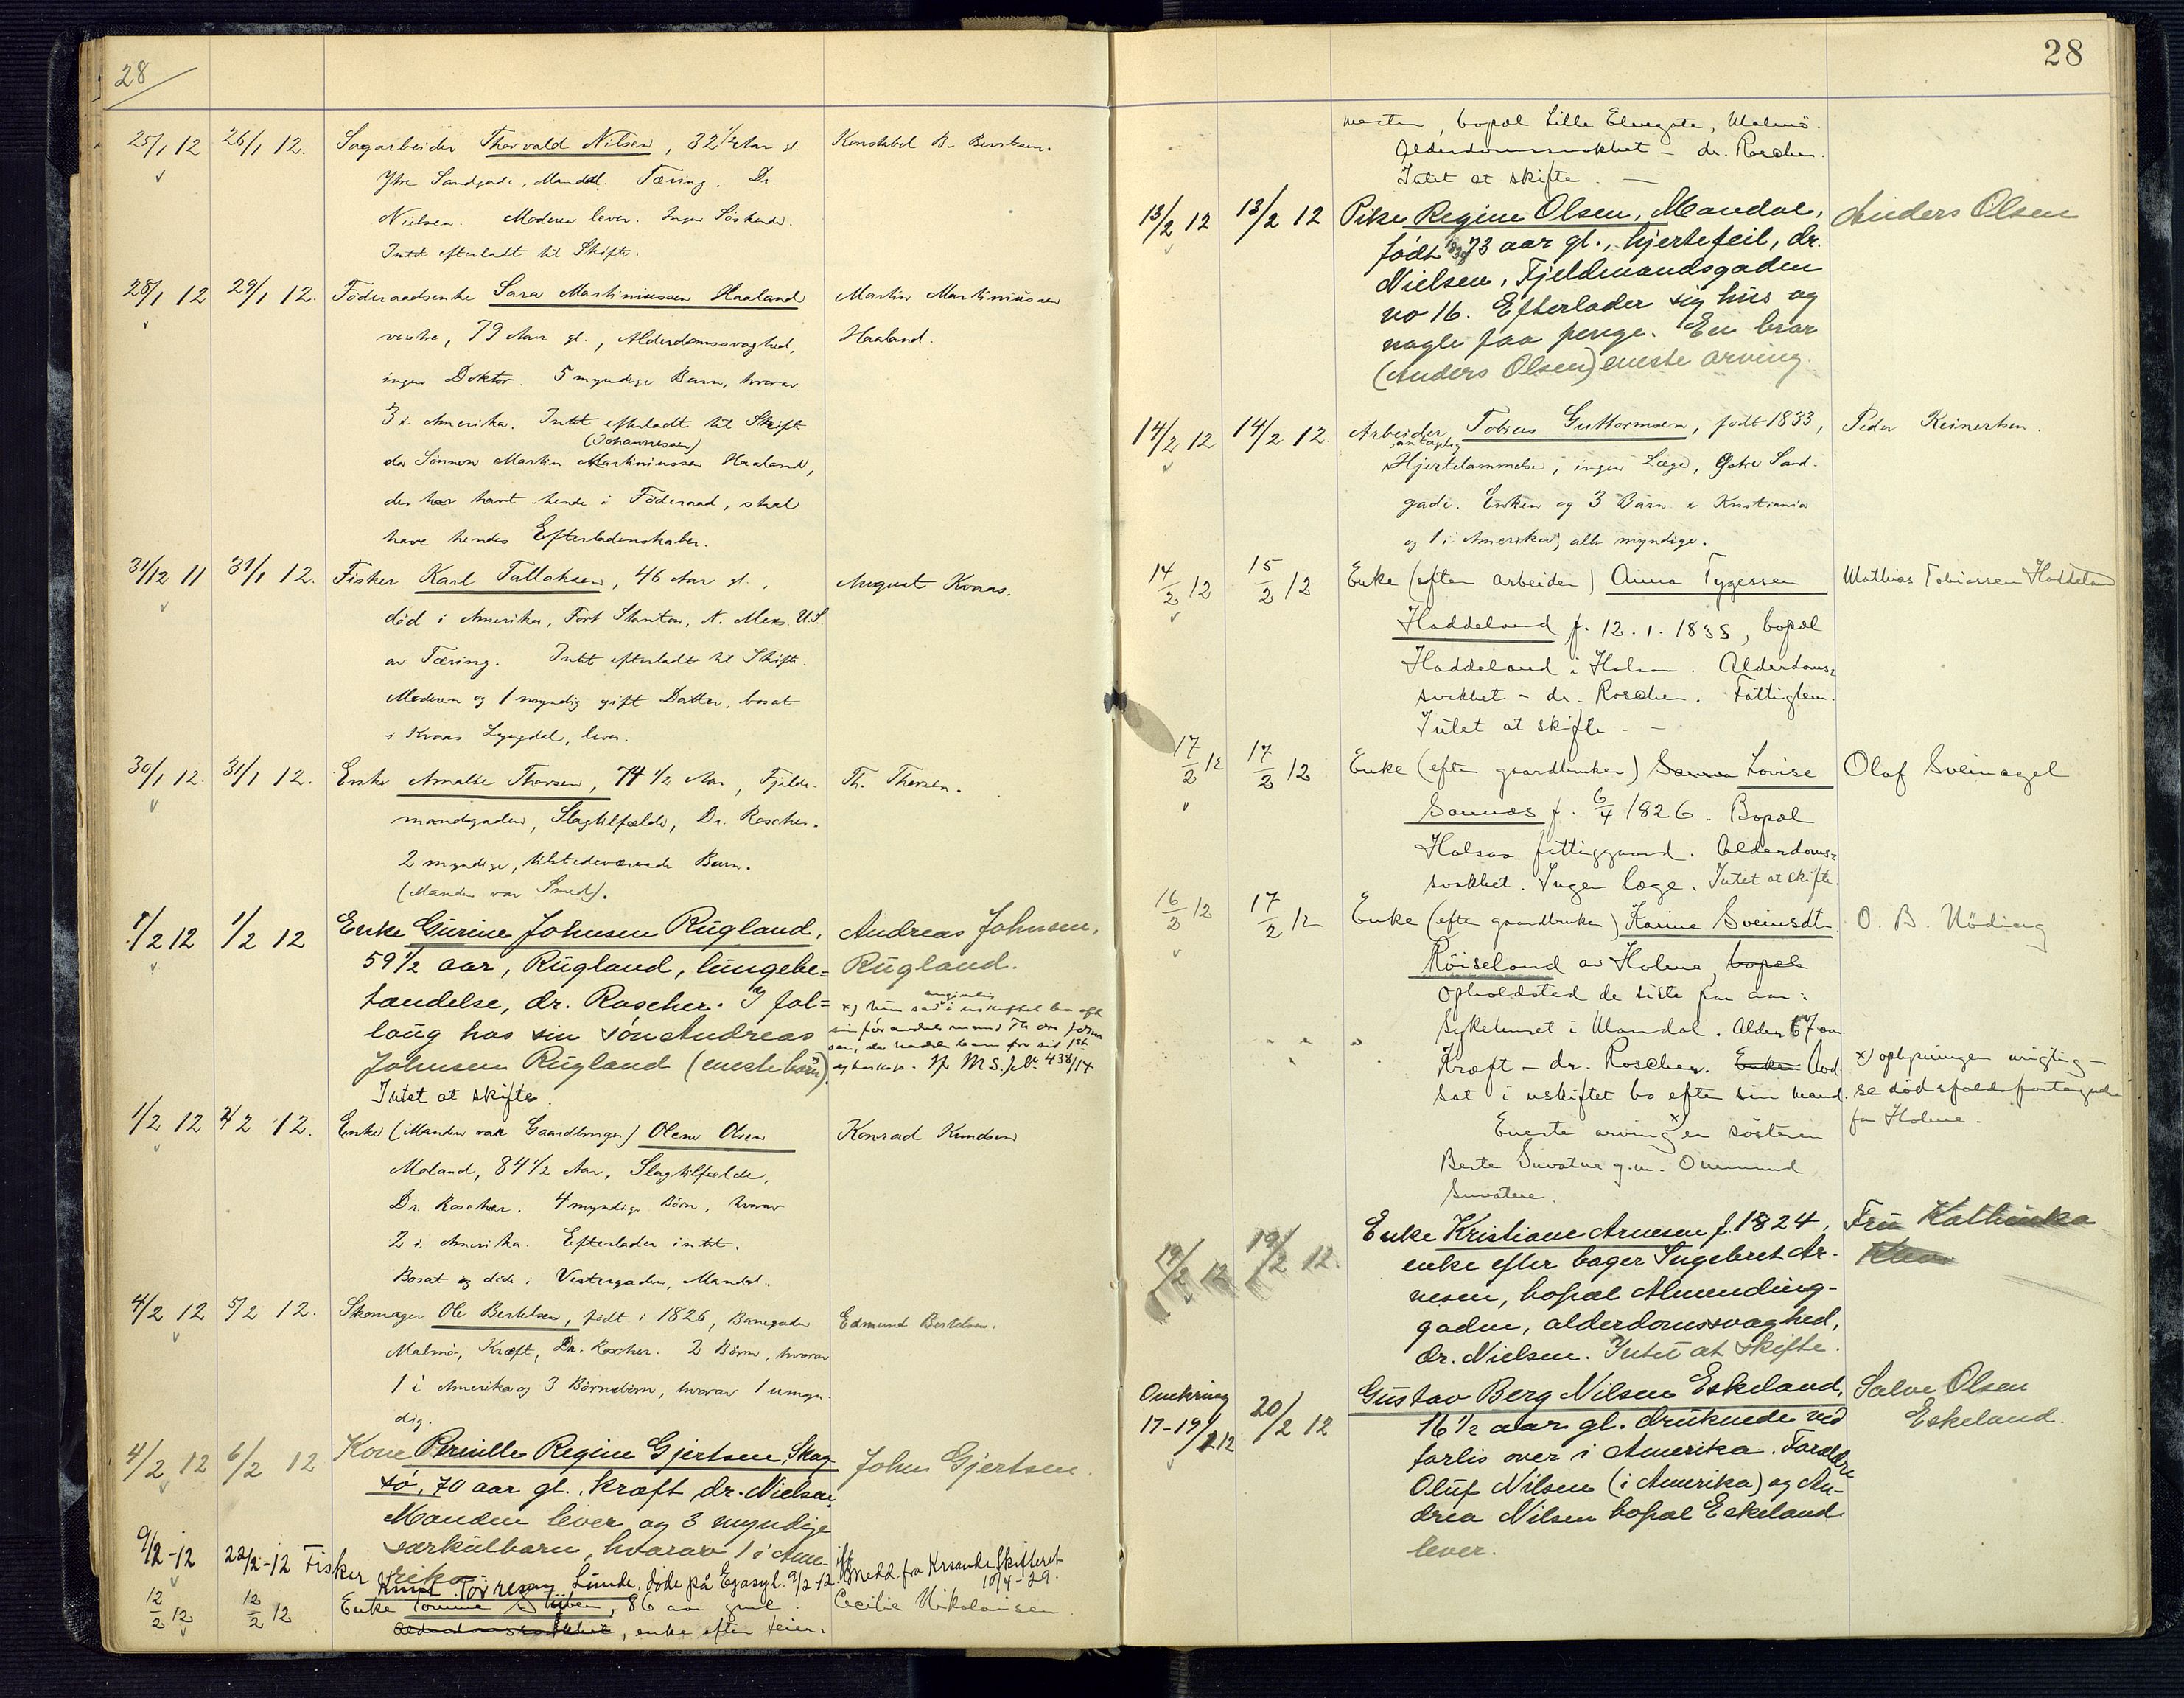 28
25/1 12 26/1 12. Sagarbeider Thorvald Nilsen, 32 1/2 Aar gl. Konstabel B. Berntsen.
Ytre Sandgade, Mandal. Tæring. Dr.
Nielsen. Moderen lever. Ingen Söskende.
Intet efterladt til Skifte.
28/1 12 29/1 12. Föderaadsenke Sara Martiniussen Haaland Martin Martiniussen
vestre, 79 Aar gl., Alderdomssvaghed, Haaland.
ingen Doktor. 5 myndige Barn, hvorav
3 i Amerika. Intet efterladt til Skifte
(Johannessen)
da Sönnen Martin Martiniussen Haaland,
der har havt hende i Föderaad, skal
have hendes Efterladenskaber.
31/12 11 31/1 12. Fisker Karl Tallaksen, 46 Aar gl., August Kvaas.
död i Amerika, Fort Stanton, N. Mex. U.S.
av Tæring. Intet efterladt til Skifte.
Moderen og 1 myndig gift Datter, bosat
i Kvaas Lyngdal, lever.
30/1 12. 31/1 12. Enke Amalie Thorsen, 74 1/2 Aar, Fjeld- Th. Thorsen.
mandsgaden, Slagtilfælde, Dr. Roscher.
2 myndige, tilstedeværende Barn.
(Manden var Smed).
1/2 12 1/2 12 Enke Gurine Johnsen Rugland, Andreas Johnsen,
59 1/2 aar, Rugland, lungebe= Rugland.
tændelse, dr. Roscher. I fol=
laug hos sin sön Andreas
Johnsen Rugland (eneste barn)
x) hun sad angivelig i uskiftet bo efter
438/14
Intet at skifte.
1/2 12 2/2 12. Enke (Manden var Gaardbruger) Olene Olsen Konrad Knudsen
Moland, 84 1/2 Aar, Slagtilfælde,
Dr. Roscher. 4 myndige Börn, hvorav
2 i Amerika. Efterlader intet.
Bosat og döde i Vestregaden, Mandal.
4/2 12 5/2 12. Skomager Ole Bertelsen, födt i 1826, Banegaden Edmund Bertelsen.
Malmö, Kræft, Dr. Roscher. 2 Börn, hvorav
1 i Amerika og 3 Börnebörn, hvorav 1 umyn-
dig.
4/2 12 6/2 12 Kone Pernille Regine Gjertsen, Skag- John Gjertsen.
sö, 70 aar gl., kræft, dr. Nielsen,
Manden lever og 3 myndige
særkulbarn, hvorav 1 i Ame-
rika.
9/2-12 22/2-12 Fisker Knut Törresen Lunde, döde på Egasyl. 9/2-12 ifl. medd. fra Krsands Skifteret 10/4-29.
12/2 12 12/2 12 Enke Tomine Stüben, 86 aar gml. Cecilie Nikolaisen.
Alderdomssvakhet, enke efter feier-
28
mester, bopæl Lille Elvegate, Malmö.
Alderdomssvakhet - dr. Roscher.
Intet at skifte. —
13/2 12 13/2 12 Pike Regine Olsen, Mandal, Anders Olsen
födt 73 aar gl., hjertefeil, dr.
Nielsen, Fjeldmandsgaden
no 16. Efterlader sig hus og
nogle faa penge. En bror
(Anders Olsen) eneste arving.
14/2 12 14/2 12. Arbeider Tobias Guttormsen, födt 1833, Peder Reinertsen.
antagelig
Hjertelammelse, ingen Læge, Ytre Sand-
gade. Enken og 3 Barn i Kristiania
og 1 i Amerika, alle myndige.
14/2 12 15/2 12 Enke (efter arbeider) Anna Tygessen Mathias Tobiassen Haddeland
Haddeland f. 12.1.1835, bopæl
Haddeland i Halsaa. Alderdoms=
svakhet - dr. Roscher. Fattiglem.
Intet at skifte. —
17/2 12 17/2 12 Enke (efter gaardbruker) Sanna Lovise Olaf Sveinagel
Sannæs f. 6/4 1826. Bopæl
Halsaa fattiggaard. Alderdoms=
svakhet. Ingen læge. Intet at skifte.
16/2 12 17/2 12 Enke (efter gaardbruker) Karine Sveinsdt O. B. Nöding
Röiseland av Holme, bopæl
Opholdsted de siste par aar:
Sykehuset i Mandal. Alder 67 aar.
Kræft - dr. Roscher. Enken Avd.
sat i uskiftet bo efter sin mand.
x)
Eneste arving er söstren
Berte Suvatne g.m. Ommund
Suvatne.
x) oplysningen urigtig -
se dödsfaldsfortegnelse
for Holme.
19/2 12 19/2 12. Enke Kristiane Arnesen f. 1824, Fru Kathinka
enke efter bager Ingebret Ar-
nesen, bopæl Almending-
gaden, alderdomssvaghed,
dr. Nielsen. Intet at skifte.
Omkring
17-19/1 12 20/2 12 Gustav Berg Nilsen Eskeland, Salve Olsen
16 1/2 aar gl. druknede ved Eskeland.
forlis over i Amerika. Forældre
Oluf Nilsen (i Amerika) og An-
drea Nilsen bopæl Eskeland
lever.